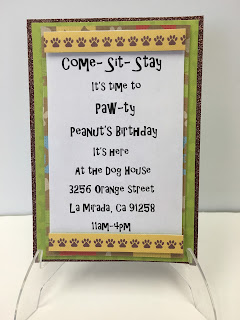 Come-Sit-Stay
It's time to
PaW-ty
Peanut's Birthday
It's Here
At the Dog House
3256 Orange Street
La Mirada, Ca 91258
11am-4pm